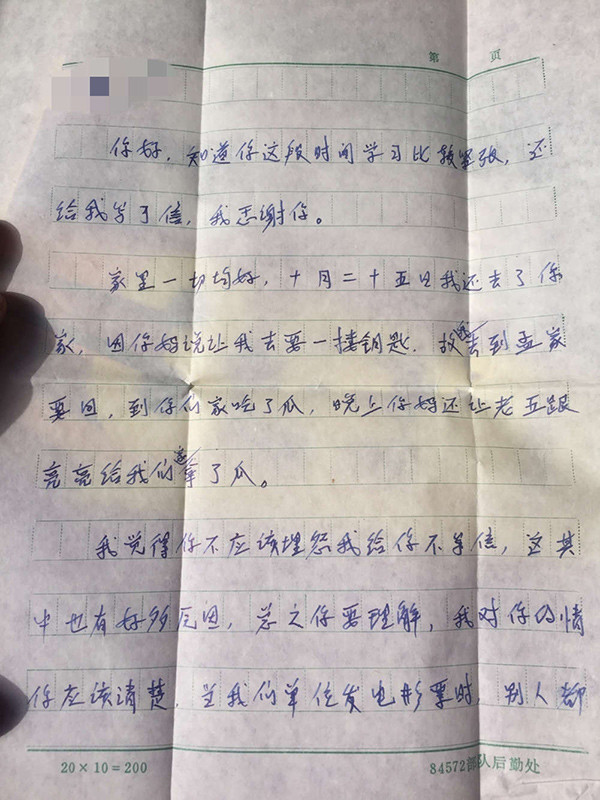 第 页
你好,知道你这段时间学习比较紧张,还
给我写了信,我感谢你。
家里一切均好,十月二十五日我还去了你
家,因你妈说让我去要一挂钥匙,故去到孟家
要回,到你们家吃了瓜,晚上你妈还让老五跟
亮亮给我们拿了瓜。
我觉得你不应该埋怨我给你不写信,这其
中也有好多原因,总之你要理解,我对你的情
你应该清楚,当我们单位发电影票时,别人都
20×10=200
84572部队后勤处